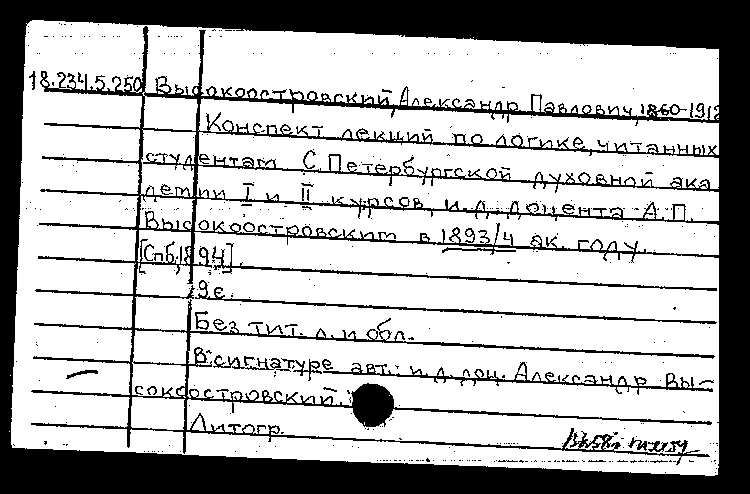 18.234.5.250 Высокоостровский, Александр Павлович, 1860-1912
Конспект лекций по логике, читанных
студентам С.Петербургской духовной ака
демии I и II курсов, и.д. доцента А.П.
Высокоостровским в 1893/4 ак. году.
[Спб, 1894].
с.
Без тит. л. и обл.
В сигнатуре авт.: и.д. доц. Александр Вы-
сокоостровский.
Литогр.